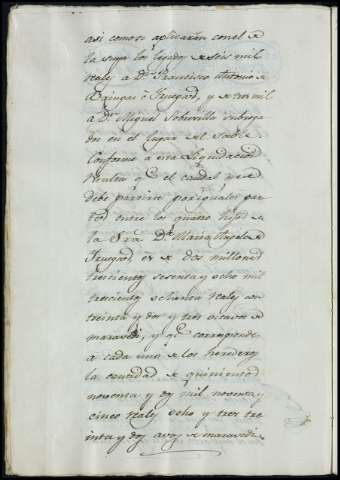 asi como se aplicarán con el de
la suya los legados de seis mil
reales a Dn. Francisco Antonio de
Bringas é Ynegard, y de tres mil
a Dn. Miguel subroga
dos en el lugar de el
Conforme a esta liquidacion
resulta qe. el caudal que
debe partirse por iguales par
tes entre los quatro hijos de
la Sra. Da. Maria Angela de
Ynegard, es de dos millones
trescientos sesenta y ocho mil
trescientos setenta reales con
treinta y dos y tres octavos de
maravedi, y qe. corresponde
a cada uno de los herederos
la cantidad de quinientos
noventa y dos mil, noventa y
cinco reales ocho y tres tre
inta y dos avos de maravedi.